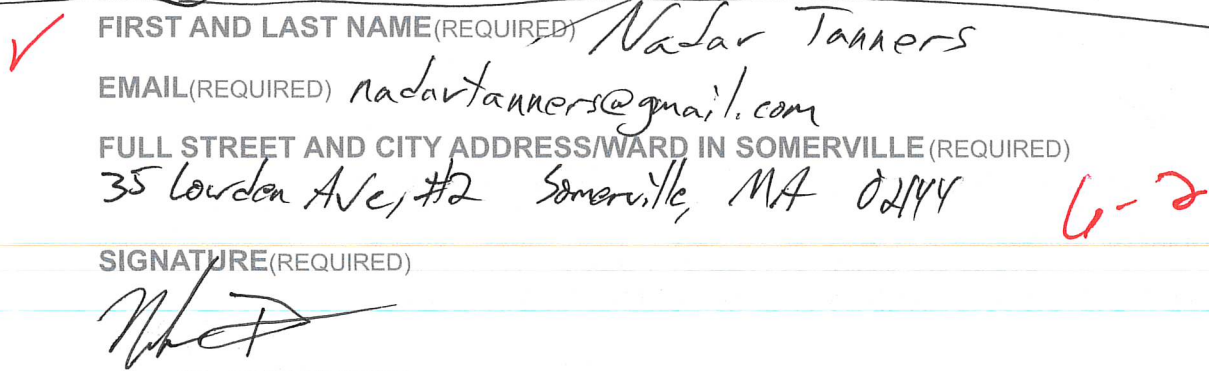 FIRST AND LAST NAME(REQUIRED) Nadav Tanners
EMAIL(REQUIRED) nadavtanners@gmail.com
FULL STREET AND CITY ADDRESS/WARD IN SOMERVILLE(REQUIRED)
35 Lowden Ave, #2 Somerville, MA 02144
6-2
SIGNATURE(REQUIRED)